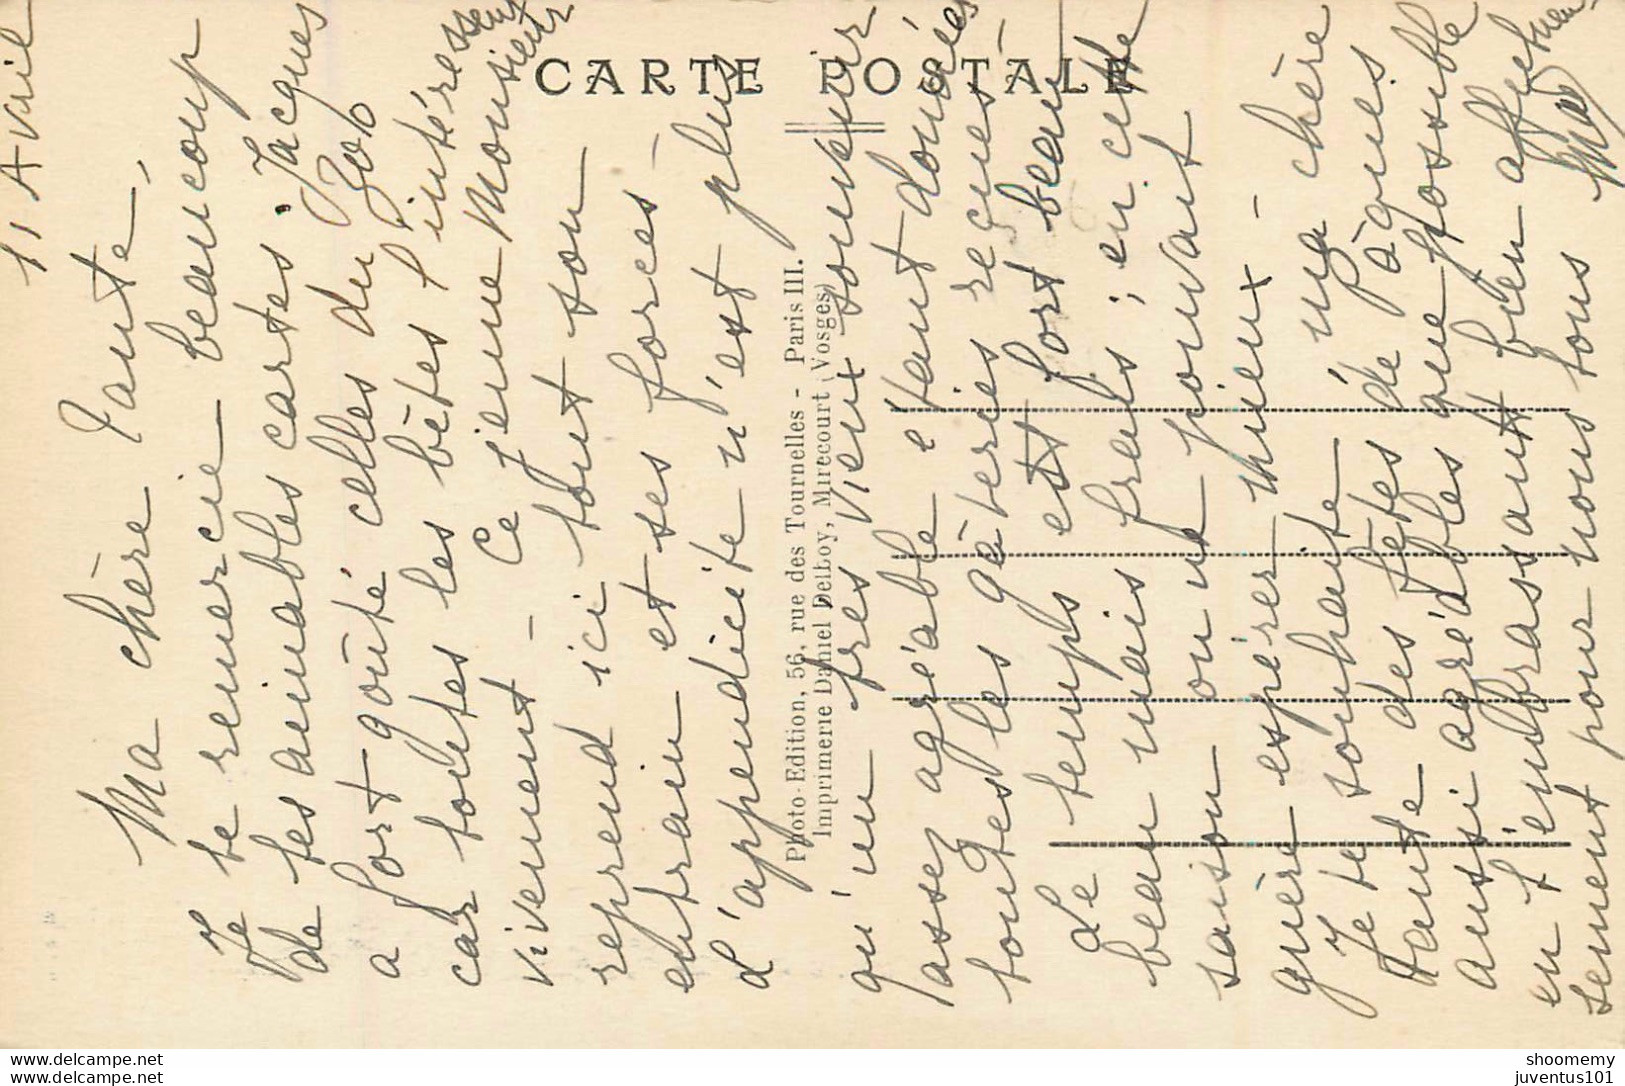 CARTE POSTALE
Photo-Edition, 56, rue des Tournelles - Paris III.
Imprimerie Daniel Delboy, Mirecourt (Vosges)
11 Avril
Ma chère Tante,
Je te remercie beaucoup
de tes aimables cartes. Jacques
a fort goûté celles du Zoo
car toutes les bêtes l'intéressent
vivement - Ce jeune Monsieur
reprend ici tout son
entrain et ses forces -
L'appendicite n'est plus
qu'un très vieux souvenir
assez agréable étant données
toutes les gâteries reçues -
Le temps est fort beau
beau mais frais ; en cette
saison on ne pouvait
guère espérer mieux -
Je te souhaite ma chère
Tante des fêtes de Pâques
aussi agréables que possible
en t'embrassant bien affectueu
sement pour nous tous